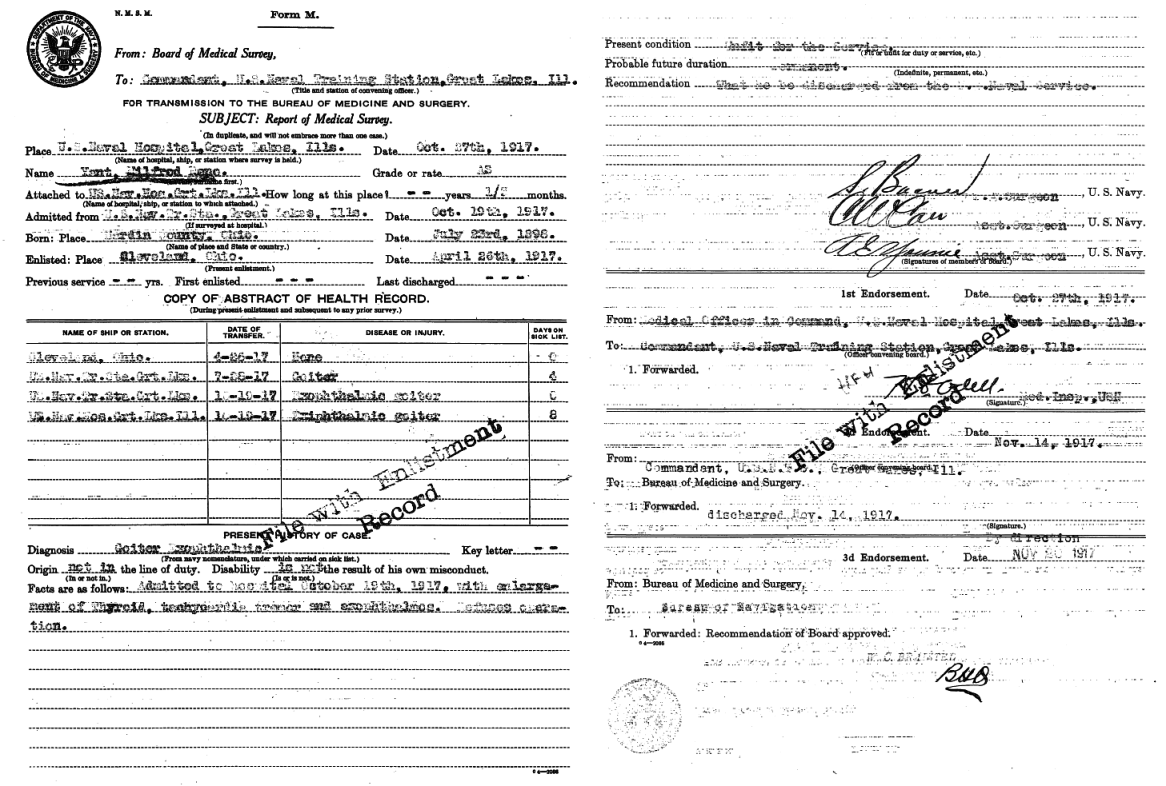 N. M. S. M.
Form M.
DEPARTMENT OF THE NAVY
BUREAU OF MEDICINE & SURGERY
From: Board of Medical Survey,
To: Commandant, U.S.Naval Training Station,Great Lakes, Ill.
(Title and station of convening officer.)
FOR TRANSMISSION TO THE BUREAU OF MEDICINE AND SURGERY.
SUBJECT: Report of Medical Survey.
(In duplicate, and will not embrace more than one case.)
Place U.S.Naval Hospital,Great Lakes, Ills. Date Oct. 27th, 1917.
(Name of hospital, ship, or station where survey is held.)
Name Grade or rate AS
Attached to US.Nav.Hos.Grt.Lks.Ill. How long at this place? -- years, 1/2 months.
(Name of hospital, ship, or station to which attached.)
Admitted from U.S.Nav.Tr.Sta., Great Lakes, Ills. Date Oct. 19th, 1917.
(If surveyed at hospital.)
Born: Place Hardin County, Ohio. Date July 23rd, 1898.
(Name of place and State or country.)
Enlisted: Place Cleveland, Ohio. Date April 26th, 1917.
(Present enlistment.)
Previous service -- yrs. First enlisted --- Last discharged ---
COPY OF ABSTRACT OF HEALTH RECORD.
(During present enlistment and subsequent to any prior survey.)
NAME OF SHIP OR STATION. DATE OF TRANSFER. DISEASE OR INJURY. DAYS ON SICK LIST.
Cleveland, Ohio. 4-26-17 None 0
US.Nav.Tr.Sta.Grt.Lks. 7-28-17 Goiter 4
US.Nav.Tr.Sta.Grt.Lks. 10-19-17 Exophthalmic goiter 0
US.Nav.Hos.Grt.Lks.Ill. 10-19-17 goiter 8
File with Enlistment
Record
PRESENT HISTORY OF CASE.
Diagnosis Goiter Exophthalmic Key letter --
(From navy nomenclature, under which carried on sick list.)
Origin not in the line of duty. Disability is not the result of his own misconduct.
(In or not in.) (Is or is not.)
Facts are as follows: Admitted to hospital October 19th, 1917, with enlarge-
ment of Thyroid, tachycardia tremor and exophthalmos. Refuses opera-
tion.
Present condition Unfit for the Service.
(Fit or unfit for duty or service, etc.)
Probable future duration Permanent.
(Indefinite, permanent, etc.)
Recommendation be discharged from the U.S.Naval Service.
Surgeon, U. S. Navy.
Asst.Surgeon, U. S. Navy.
Asst.Surgeon, U. S. Navy.
(Signatures of members of board.)
1st Endorsement. Date Oct. 27th, 1917.
From: Medical Officer in Command, U.S.Naval Hospital,Great Lakes, Ills.
To: Commandant, U.S.Naval Training Station,Great Lakes, Ills.
(Officer convening board.)
1. Forwarded.
Med.Insp.,USN
(Signature.)
File with Enlistment
Record
Endorsement. Date Nov. 14, 1917.
From: Commandant, Great Lakes, Ill.
(Officer convening board.)
To: Bureau of Medicine and Surgery.
1. Forwarded.
discharged Nov. 14, 1917.
(Signature.)
By direction
3d Endorsement. Date NOV 20 1917
From: Bureau of Medicine and Surgery,
To: Bureau of Navigation
1. Forwarded: Recommendation of Board approved.
W. C. BRAISTED